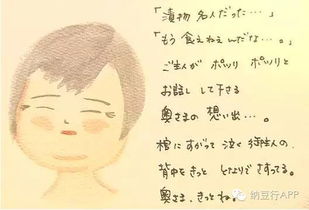 「漬物 名人だった…」
「もう 食えねえんだな…。」
ご主人が ポツリ ポツリと
お話し して下さる
奥さまの 想い出…。
棺に すがって 泣く 御主人の、
背中を きっと となりで さすってる。
奥さま、きっとね。
纳豆行APP